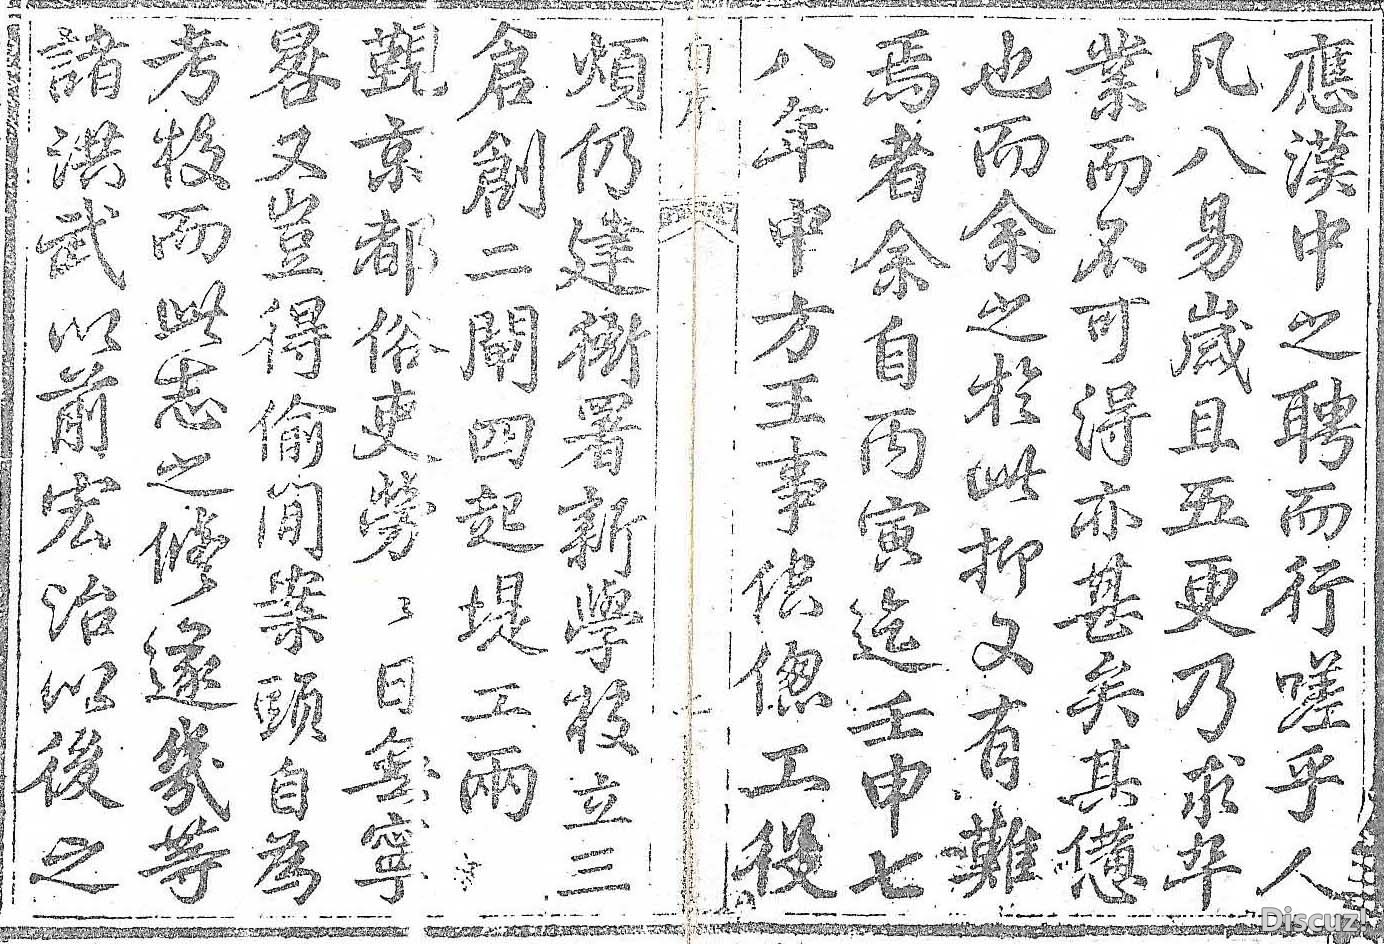 應漢中之聘而行嗟乎人
凡八易歲且五更乃求卒
業而不可得亦甚矣其憊
也而余之於此抑又有難
焉者余自丙寅迄壬申七
八年中方王事倥偬工役
自序
二
煩仍建衙署新學校立三
倉創二閘四起堤工兩
覲京都俗吏勞〻日無寧
晷又豈得偷閒案頭自為
考校而此志之修遂幾等
諸洪武以前宏治以後之
Discuz!